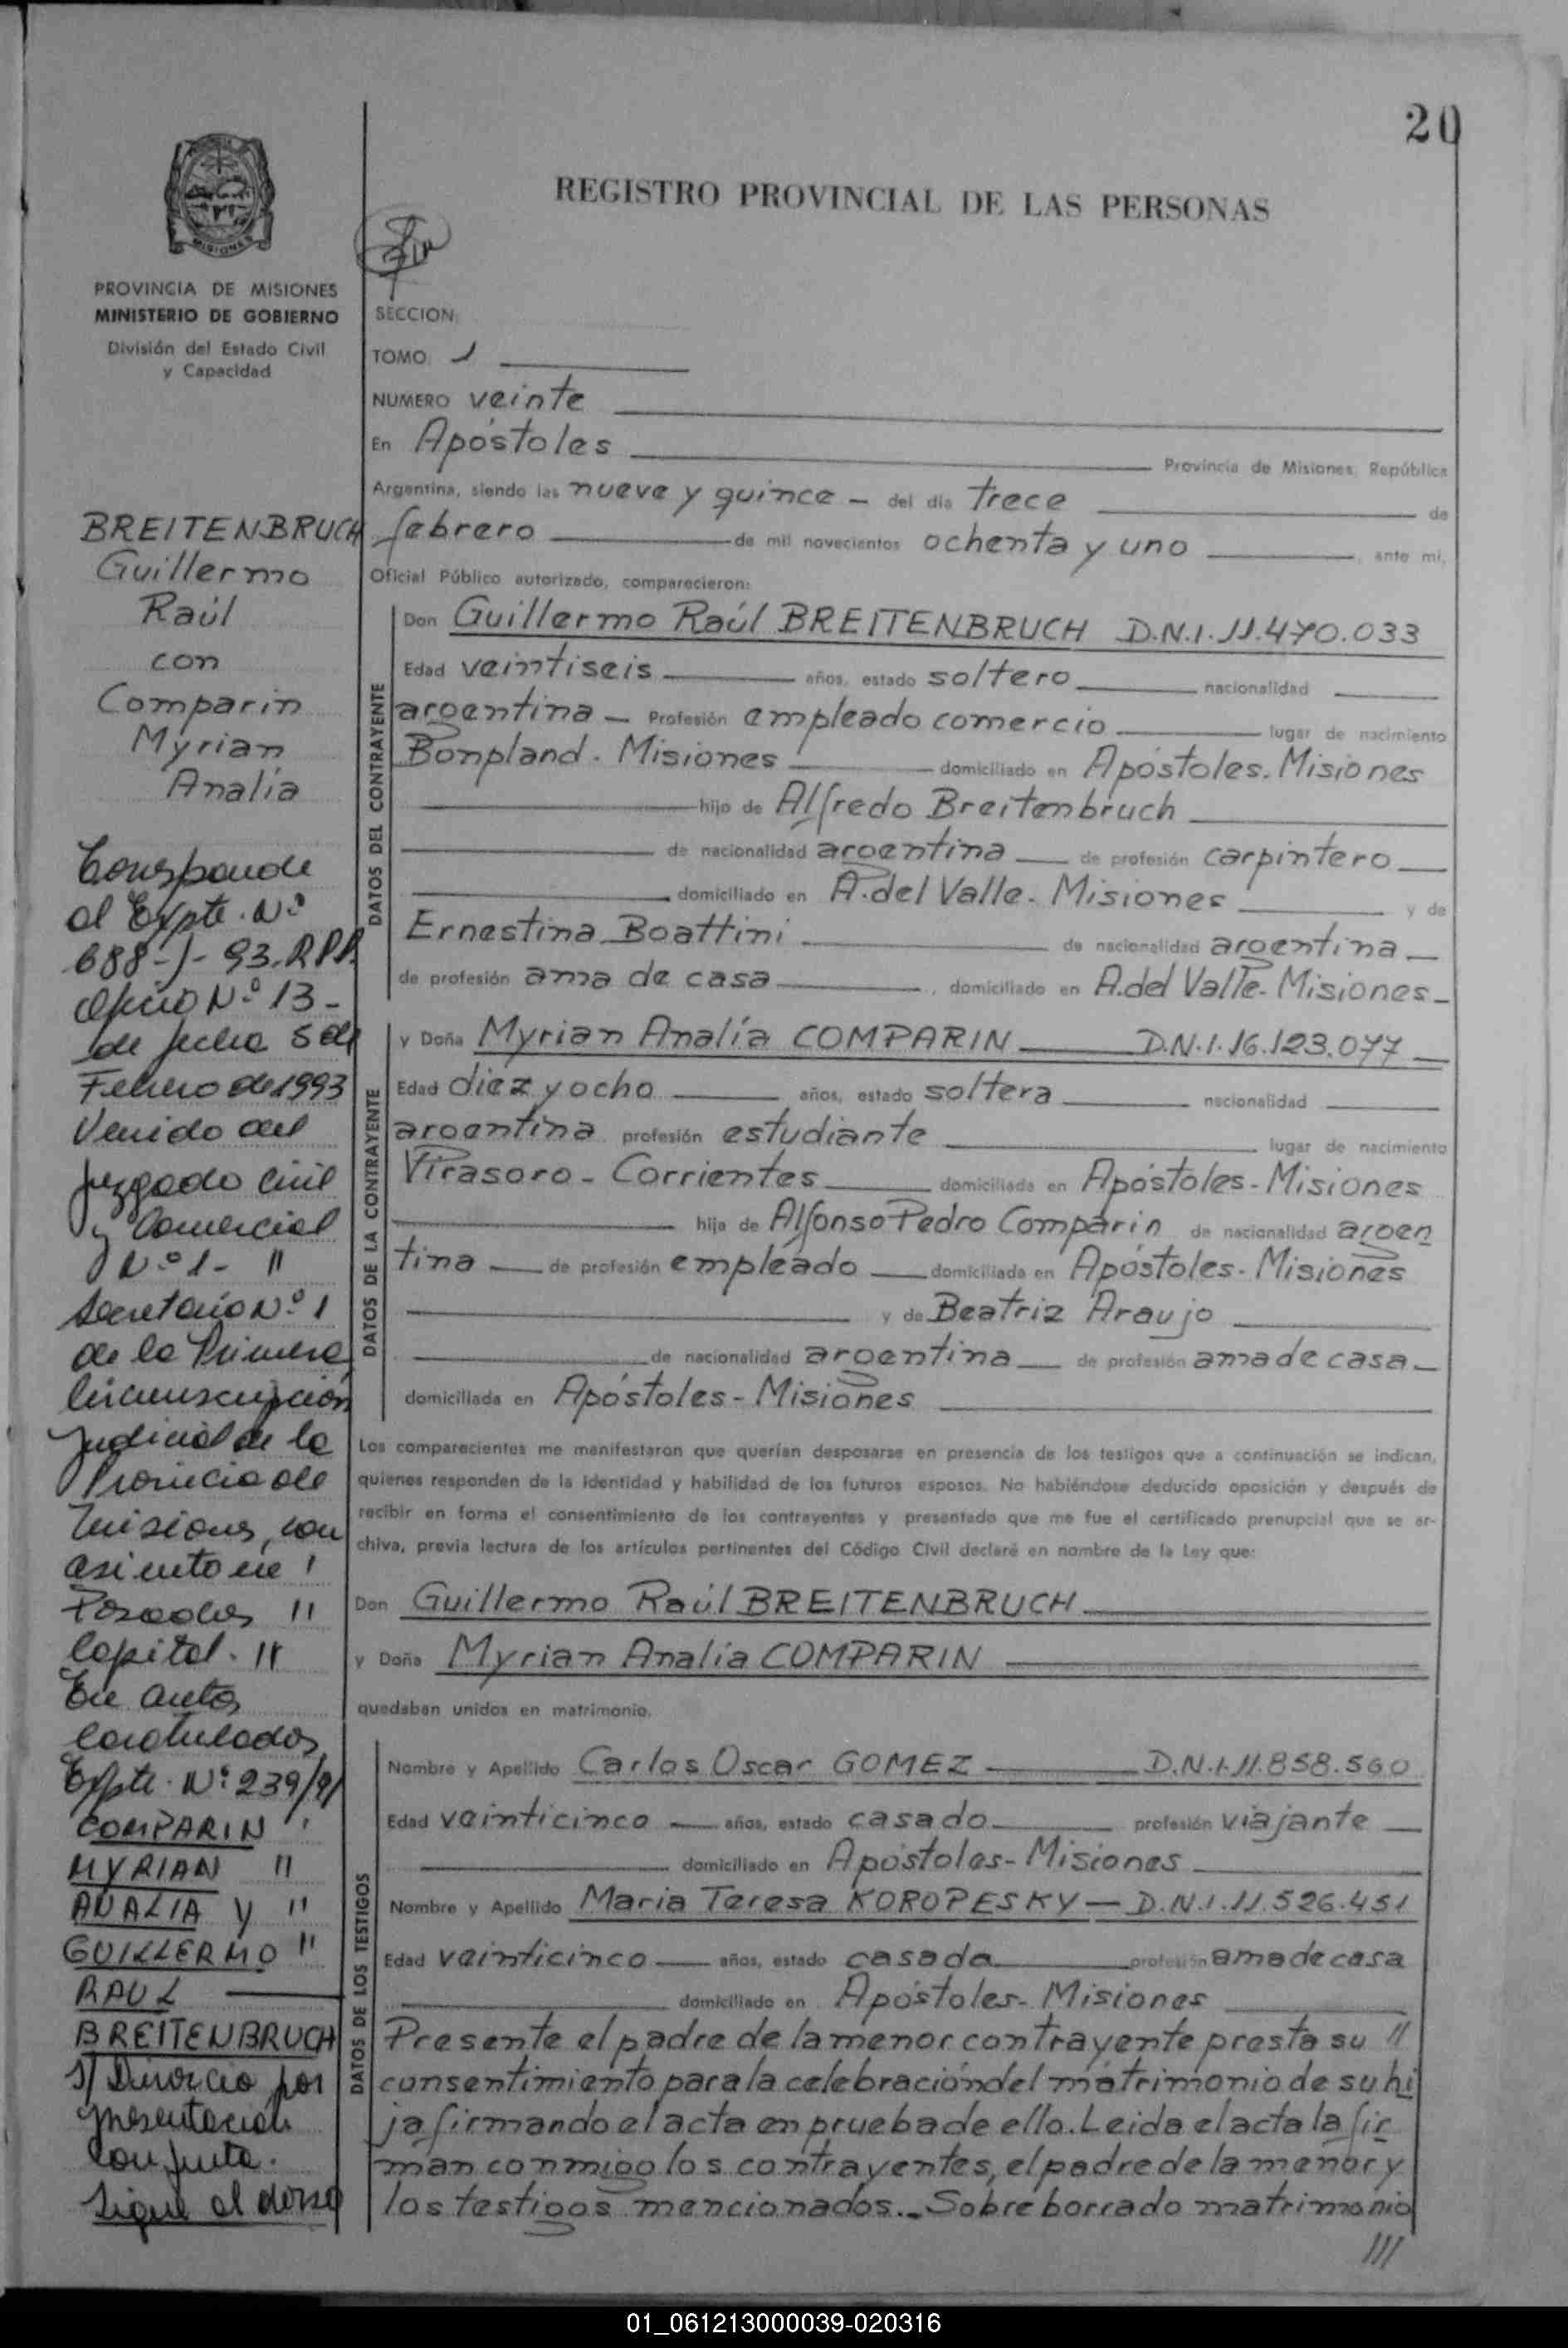 20
REGISTRO PROVINCIAL DE LAS PERSONAS
MISIONES
PROVINCIA DE MISIONES
MINISTERIO DE GOBIERNO
División del Estado Civil
y Capacidad
BREITENBRUCH
Guillermo
Raúl
con
Comparin
Myrian
Analía
Corresponde
al Expte. Nº
688-J-93.RPP.
Oficio Nº 13-
de fecha 5 de
Febrero de 1993
Venido del
Juzgado Civil
y Comercial
Nº 1- "
Secretario Nº 1
de la Primera
Circunscripción
Judicial de la
Provincia de
Misiones, con
asiento en '
Posadas "
Capital. "
En autos
Caratulados
Expte. Nº 239/91
COMPARIN '
MYRIAN "
ANALIA y "
GUILLERMO "
RAUL
BREITENBRUCH
s/ Divorcio por
presentación
Conjunta.
Sigue al dorso
SECCION
TOMO 1
NUMERO veinte
En Apóstoles Provincia de Misiones, República
Argentina, siendo las nueve y quince - del día trece de
febrero de mil novecientos ochenta y uno, ante mí,
Oficial Público autorizado, comparecieron:
DATOS DEL CONTRAYENTE
Don Guillermo Raúl BREITENBRUCH D.N.I. 11.470.033
Edad veintiseis años, estado soltero nacionalidad
argentina - Profesión empleado comercio lugar de nacimiento
Bonpland. Misiones domiciliado en Apóstoles. Misiones
hijo de Alfredo Breitenbruch
de nacionalidad argentina de profesión carpintero
domiciliado en A. del Valle. Misiones y de
Ernestina Boattini de nacionalidad argentina
de profesión ama de casa, domiciliado en A. del Valle- Misiones-
DATOS DE LA CONTRAYENTE
y Doña Myrian Analía COMPARIN D.N.I. 16.123.077
Edad diez y ocho años, estado soltera nacionalidad
argentina profesión estudiante lugar de nacimiento
Virasoro - Corrientes domiciliada en Apóstoles - Misiones
hija de Alfonso Pedro Comparin de nacionalidad argen
tina de profesión empleado domiciliada en Apóstoles- Misiones
y de Beatriz Araujo
de nacionalidad argentina de profesión ama de casa
domiciliada en Apóstoles - Misiones
Los comparecientes me manifestaron que querían desposarse en presencia de los testigos que a continuación se indican,
quienes responden de la identidad y habilidad de los futuros esposos. No habiéndose deducido oposición y después de
recibir en forma el consentimiento de los contrayentes y presentado que me fue el certificado prenupcial que se ar-
chiva, previa lectura de los artículos pertinentes del Código Civil declaré en nombre de la Ley que:
Don Guillermo Raúl BREITENBRUCH
y Doña Myrian Analía COMPARIN
quedaban unidos en matrimonio.
DATOS DE LOS TESTIGOS
Nombre y Apellido Carlos Oscar GOMEZ D.N.I. 11.858.560
Edad veinticinco años, estado casado profesión viajante
domiciliado en Apóstoles- Misiones
Nombre y Apellido Maria Teresa KOROPESKY - D.N.I. 11.526.451
Edad veinticinco años, estado casada profesión ama de casa
domiciliado en Apóstoles- Misiones
Presente el padre de la menor contrayente presta su "
consentimiento para la celebración del matrimonio de su hi
ja firmando el acta en prueba de ello. Leida el acta la fir
man conmigo los contrayentes, el padre de la menor y
los testigos mencionados.- Sobre borrado matrimonio
///
01_061213000039-020316